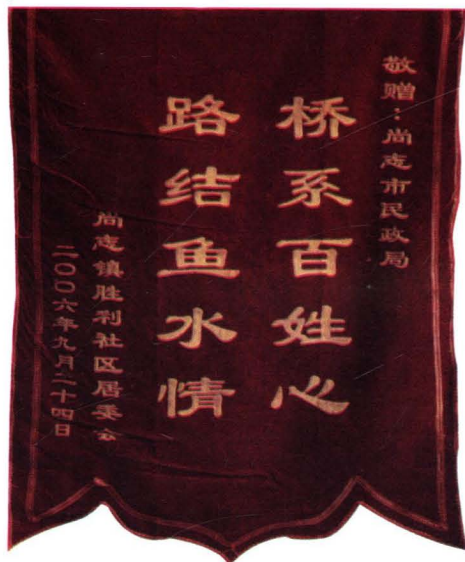 敬赠：尚志市民政局
桥系百姓心
路结鱼水情
尚志镇胜利社区居委会
二〇〇六年九月二十四日